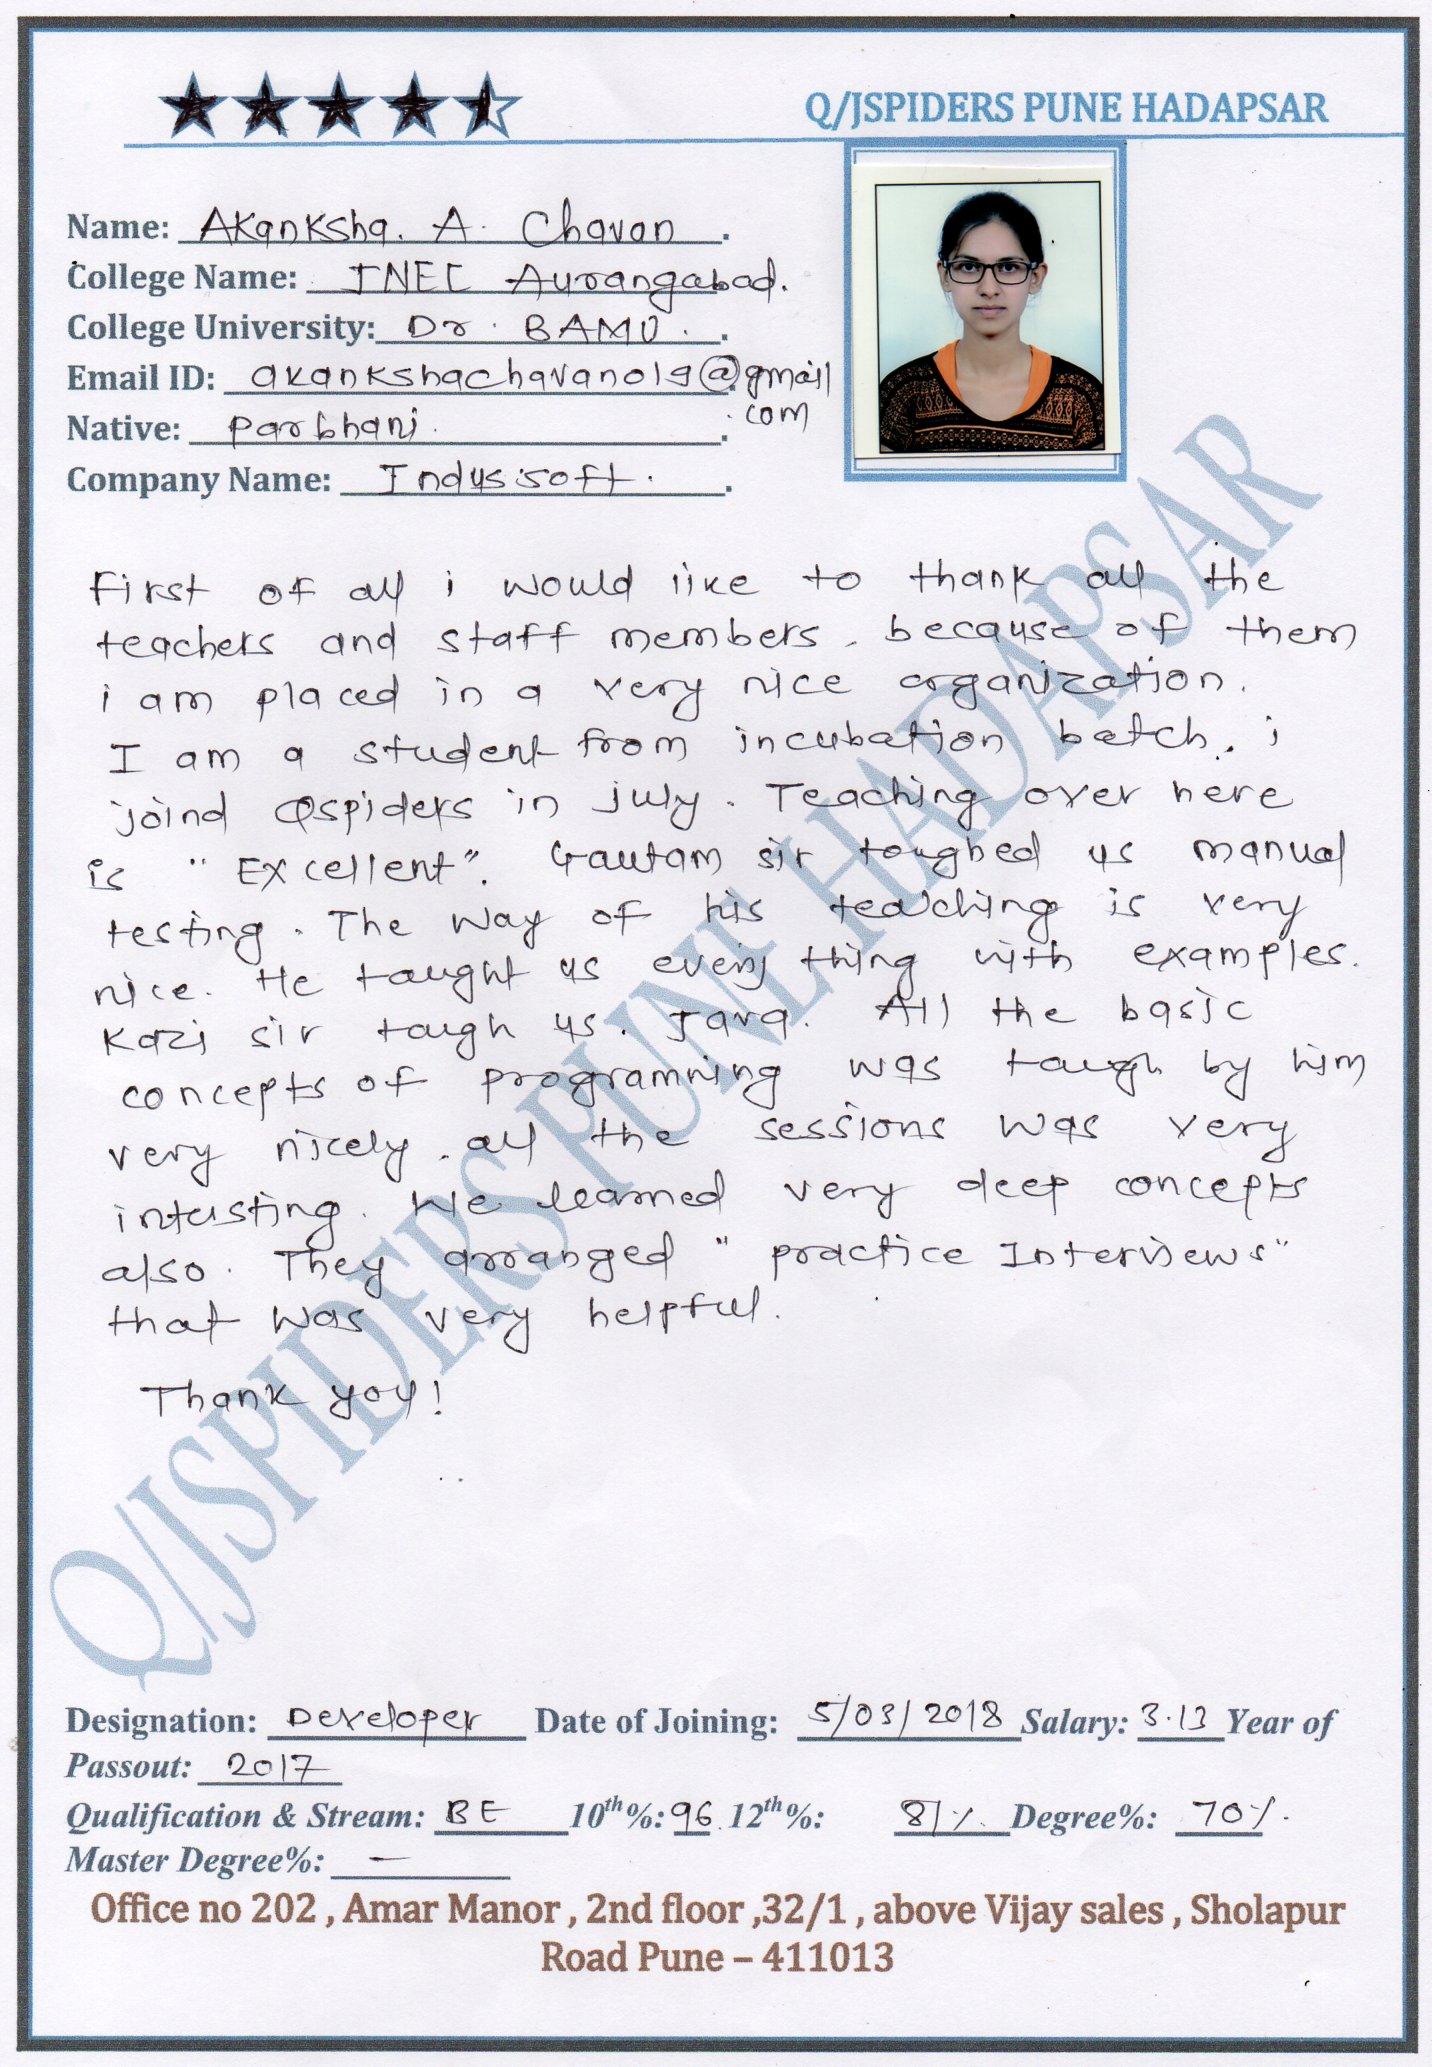 Q/JSPIDERS PUNE HADAPSAR
Name: Akanksha. A. Chavan.
College Name: JNEC Aurangabad.
College University: Dr. BAMU.
Email ID: akankshachavan019@gmail
.com
Native: Parbhani.
Company Name: Indussoft.
First of all i would like to thank all the
teachers and staff members. because of them
i am placed in a very nice organization.
I am a student from incubation batch. i
joind Qspiders in july. Teaching over here
is "Excellent". Gautam sir toughed us manual
testing. The way of his teaching is very
nice. He taught us every thing with examples.
Kazi sir tough us. Java. All the basic
concepts of programming was taugh by him
very nicely. all the sessions was very
intusting. We learned very deep concepts
also. They arranged "practice Interviews"
that was very helpful.
Thank you!
Q/JSPIDERS PUNE HADAPSAR
Designation: Developer Date of Joining: 5/03/2018 Salary: 3.13 Year of
Passout: 2017
Qualification & Stream: BE 10th%: 96 12th%: 81% Degree%: 70%.
Master Degree%: —
Office no 202 , Amar Manor , 2nd floor ,32/1 , above Vijay sales , Sholapur
Road Pune – 411013